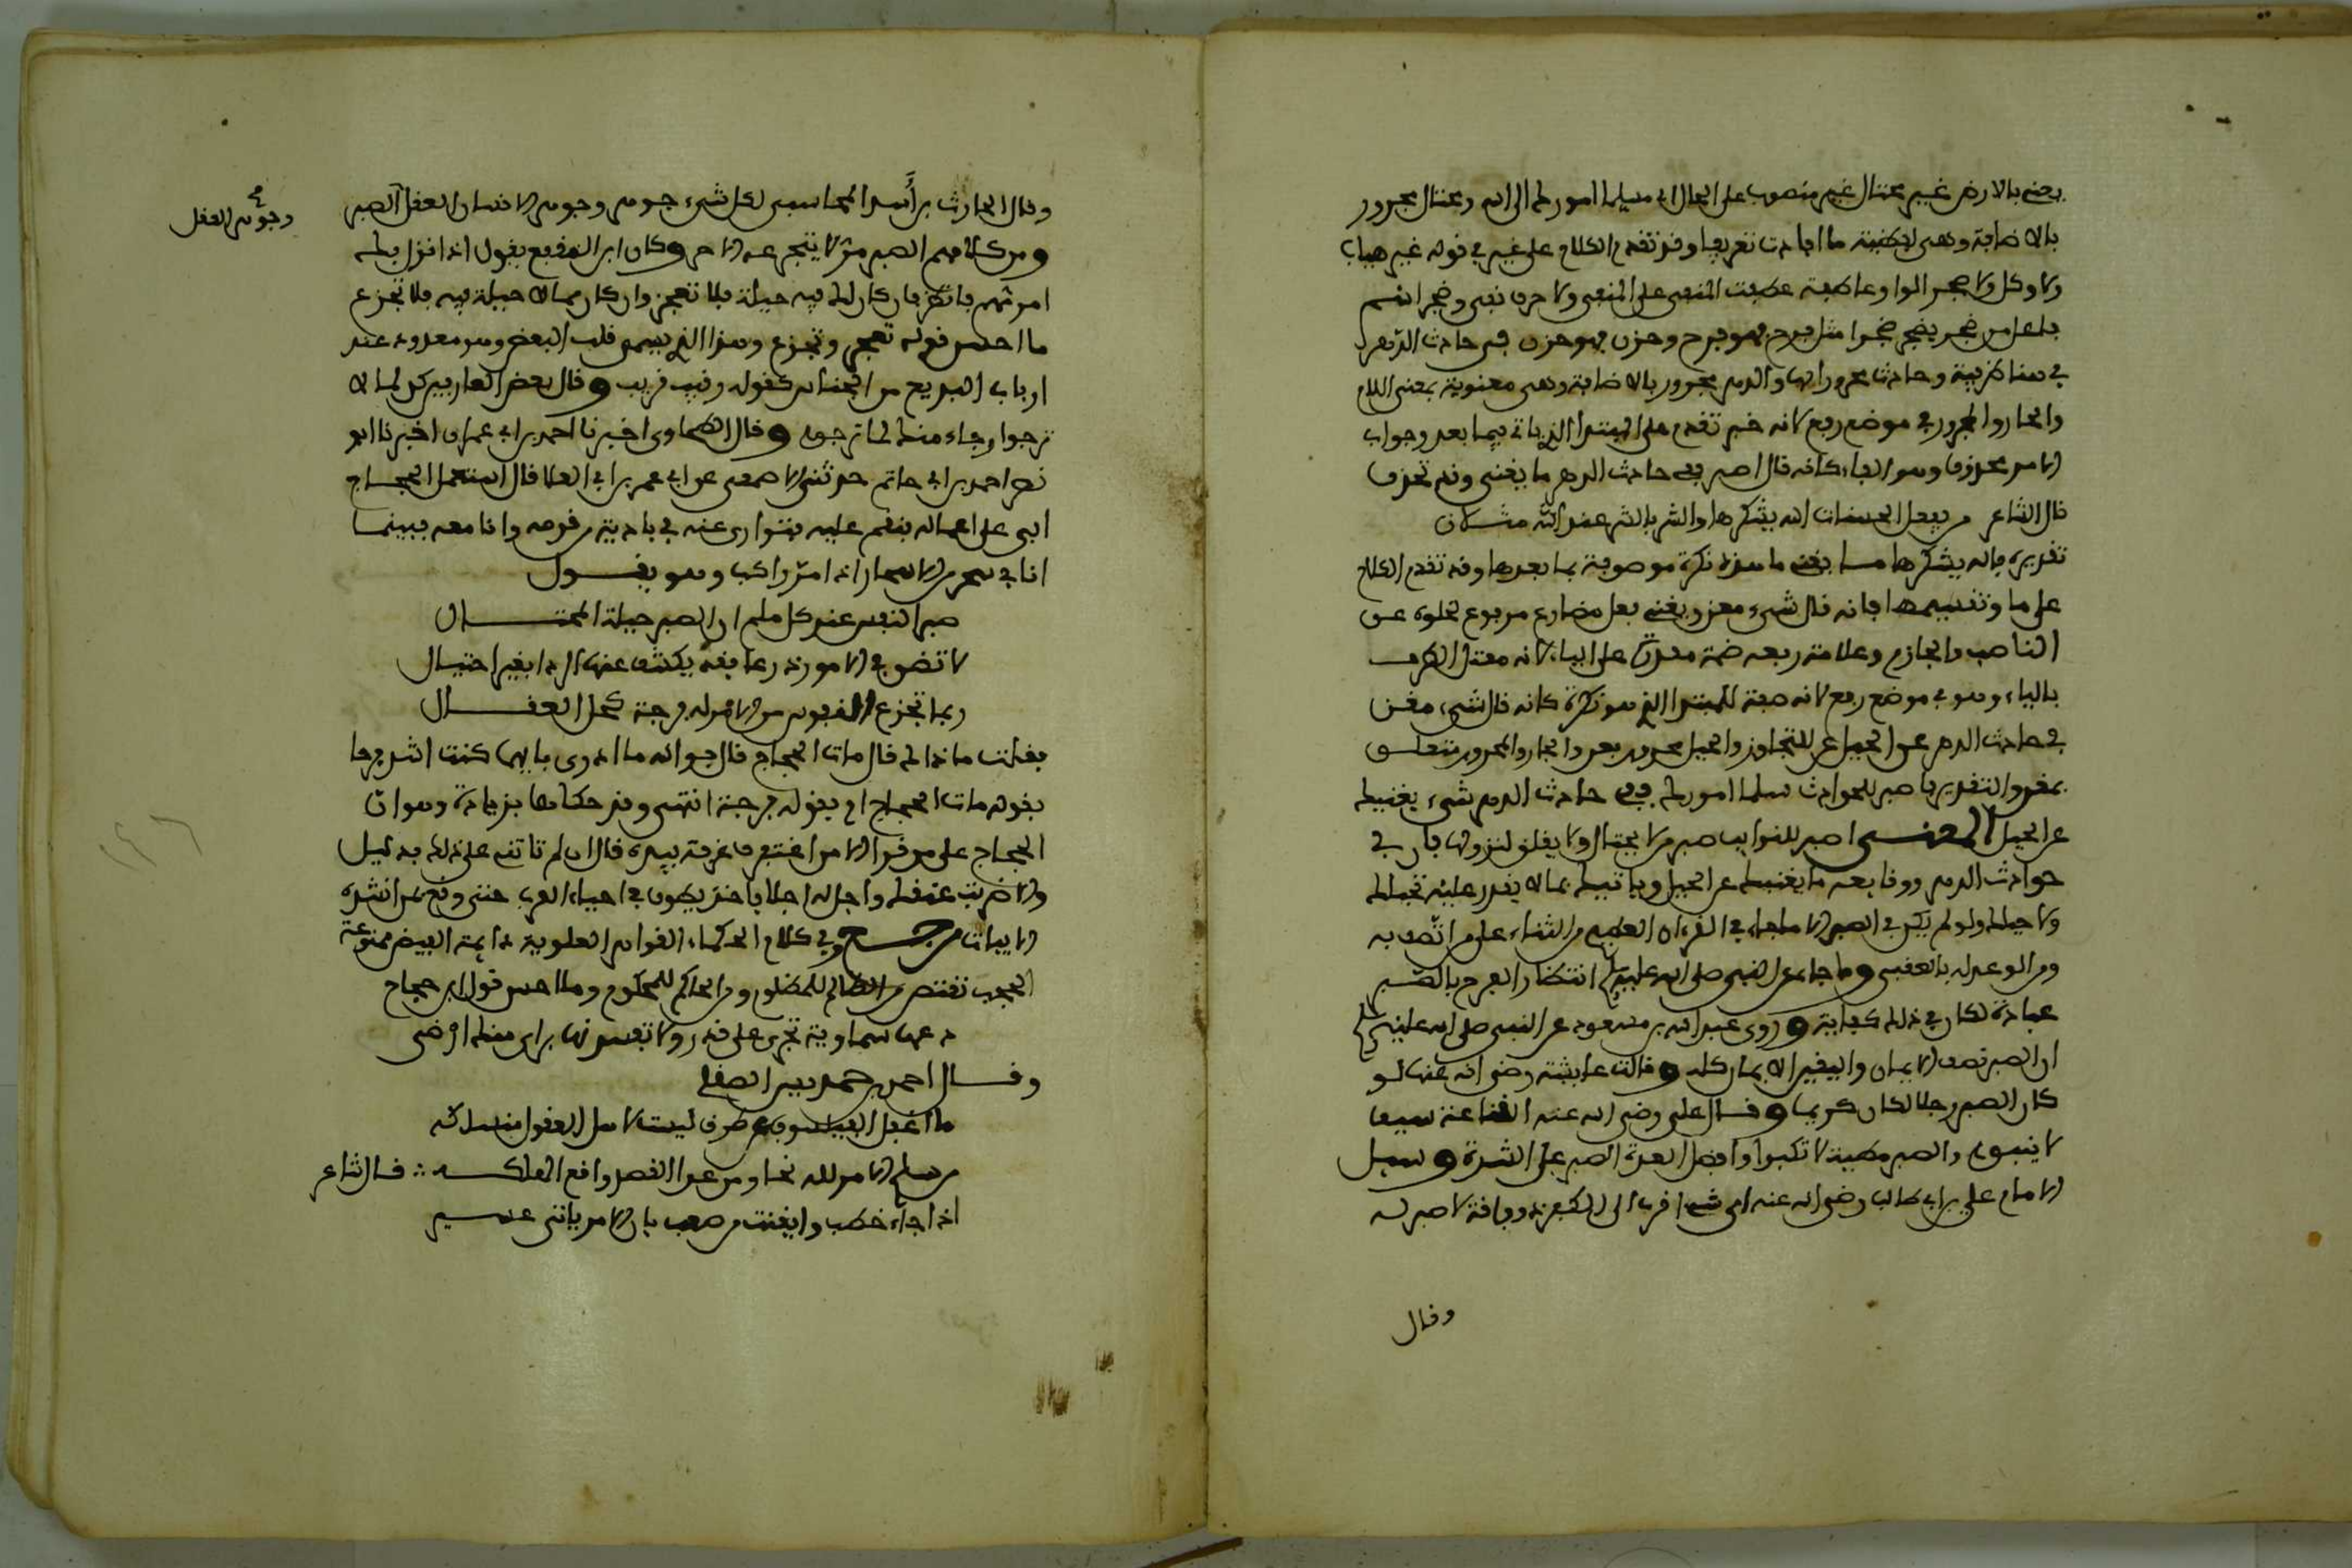 يعني بالارض غير محتال غير منصوب على الحال اي مسلما امورك الى الله ومحتال مجرور
بالاضافة وهي لفظية ما افادت تعريفا وقد تقدم الكلام على غير في قوله غير هياب
ولا وكل ولا ضجر الواو عاطفة عطفت المنفى على المنفى ولا حرف نفي وضجر اسم
فاعل من ضجر يضجر ضجرا مثل فرح فهو فرح وحزن فهو حزن في حادث الدهر
في هنا ظرفية وحادث مجرور بها والدهر مجرور بالاضافة وهي معنوية بمعنى اللام
والجار والمجرور في موضع رفع لانه خبر تقدم على المبتدا الذي ياتي فيما بعد وجواب
الامر محذوف وهو الفاء كانه قال اصبر ففي حادث الدهر ما يغني وقد تحذف
قال الشاعر من يفعل الحسنات الله يشكرها والشر بالشر عند الله مثلان
تقديره فالله يشكرها ما يغني ما هنا نكرة موصوفة بما بعدها وقد تقدم الكلام
على ما وتقسيمها فانه قال شيء مغن ويغني فعل مضارع مرفوع لخلوه عن
الناصب والجازم وعلامة رفعه ضمة مقدرة على الياء لانه معتل الطرف
بالياء وهو في موضع رفع لانه صفة للمبتدا الذي هو نكرة كانه قال شيء مغن
في حادث الدهر عن الحيل عن للتجاوز والحيل مجرور بعن والجار والمجرور متعلق
بمغن والتقدير فاصبر للحوادث مسلما امورك ففي حادث الدهر شيء يغنيك
عن الحيل المعنى اصبر للنوايب صبر من لا يحتال ولا يقلق لنزولها فان في
حوادث الدهر ووقايعه ما يغنيك عن الحيل وياتيك بما لا يقدر عليه تخيلك
ولا حيلك ولو لم يكن في الصبر الا ما جاء في القرءان العظيم من الثناء على من اتصف به
ومن الوعد له بالعقبى وما جاء عن النبي صلى الله عليه وسلم انتظار الفرج بالصبر
عبادة لكان في ذلك كفاية وروى عبد الله بن مسعود عن النبي صلى الله عليه وسلم
ان الصبر نصف الايمان واليقين الايمان كله وقالت عايشة رضي الله عنها لو
كان الصبر رجلا لكان كريما وقال علي رضي الله عنه القناعة سيف
لا ينبو والصبر مطية لا تكبوا وافضل العدة الصبر على الشدة وسيل
الامام علي بن ابي طالب رضي الله عنه اي شيء اقرب الى الكفر قال ذو فاقة لا صبر له
وقال
وقال الحارث بن أسد المحاسبي لكل شيء جوهر وجوهر الانسان العقل الصبر
وجوهر العقل
ومن كلامهم الصبر مر لا يتجرعه الا حر وكان ابن المقفع يقول اذا نزل بك
امر مهم فانظر فان كان لك فيه حيلة فلا تعجز وان كان مما لا حيلة فيه فلا تجزع
ما احسن قوله تعجز وتجزع وهذا الذي يسمى قلب البعض وهو معدود عند
ارباب البديع من الجناس كقوله رقيب قريب وقال بعض العارفين كن لما لا
ترجوا رجاء منك لما ترجوه وقال الطحاوي اخبرنا احمد بن ابي عمران اخبرنا ابو
نصر احمد بن ابي حاتم حدثني الاصمعي عن ابي عمر بن ابي العلا قال استعمل الحجاج
ابي على اعماله فنقم عليه فتوارى عنه في بادية قومه وانا معه فبينما
انا في سحر من الاسحار اذا امر راكب وهو يقول
صبر النفس عند كل ملم ان الصبر حيلة المحتال
لا تضق في الامور ذرعا فقد يكشف عنها الردا بغير احتيال
ربما تجزع النفوس من الامر له فرجة كحل العقال
فقلت ما ذالك قال مات الحجاج قال فوالله ما ادري بايهما كنت اشد فرحا
بقوله مات الحجاج او بقوله فرجة انتهى وقد حكاها بزيادة وهو ان
الحجاج على من قرا الا من اغترف غرفة بيده قال ان لم تاتني على ذلك بدليل
والا ضربت عنقك واجل له اجلا فاخذ يطوف في احياء العرب حتى وقع بمن انشده
الابيات رجع وفي كلام الحكماء القوام العلوية دايمة الفيض ممنوعة
الحجب تقتص من الظالم للمظلوم ومن الحاكم للمحكوم وما احسن قول ابن حجاج
دعها سماوية تجري على قدر ولا تفسدنها براي منك ارضي
وقال احمد بن حمديس الصقلي
ما اغفل الفيلسوف عن طرف ليست لاهل العقول منسلكه
من سلم الامر لله نجا ومن عدا القصد واقع الهلكه ∴ قال الشاعر
اذا جاء خطب وايقنت من صعب بان الامر ياتي عسير